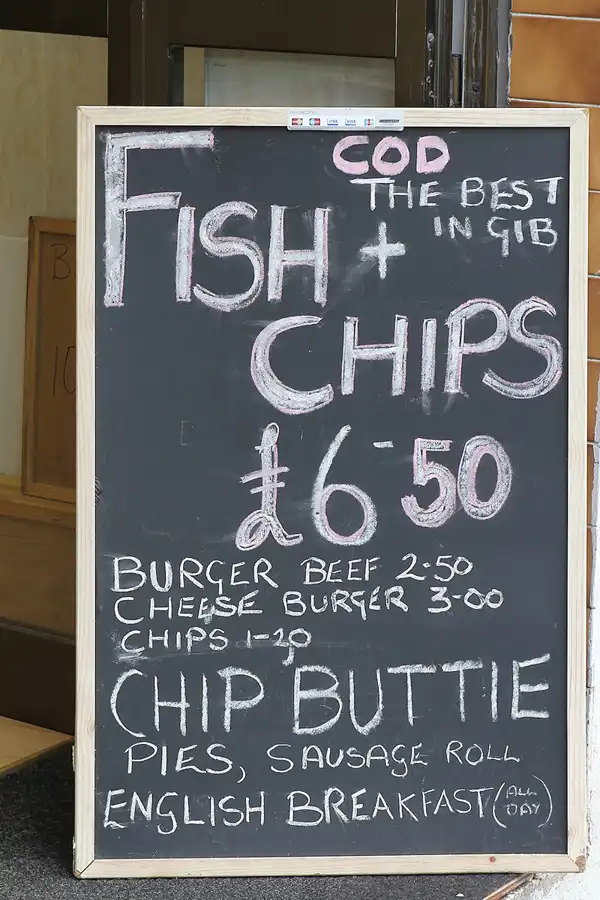 COD
THE BEST
IN GIB
FISH +
CHIPS
£6-50
BURGER BEEF 2-50
CHEESE BURGER 3-00
CHIPS 1-20
CHIP BUTTIE
PIES, SAUSAGE ROLL
ENGLISH BREAKFAST (ALL DAY)